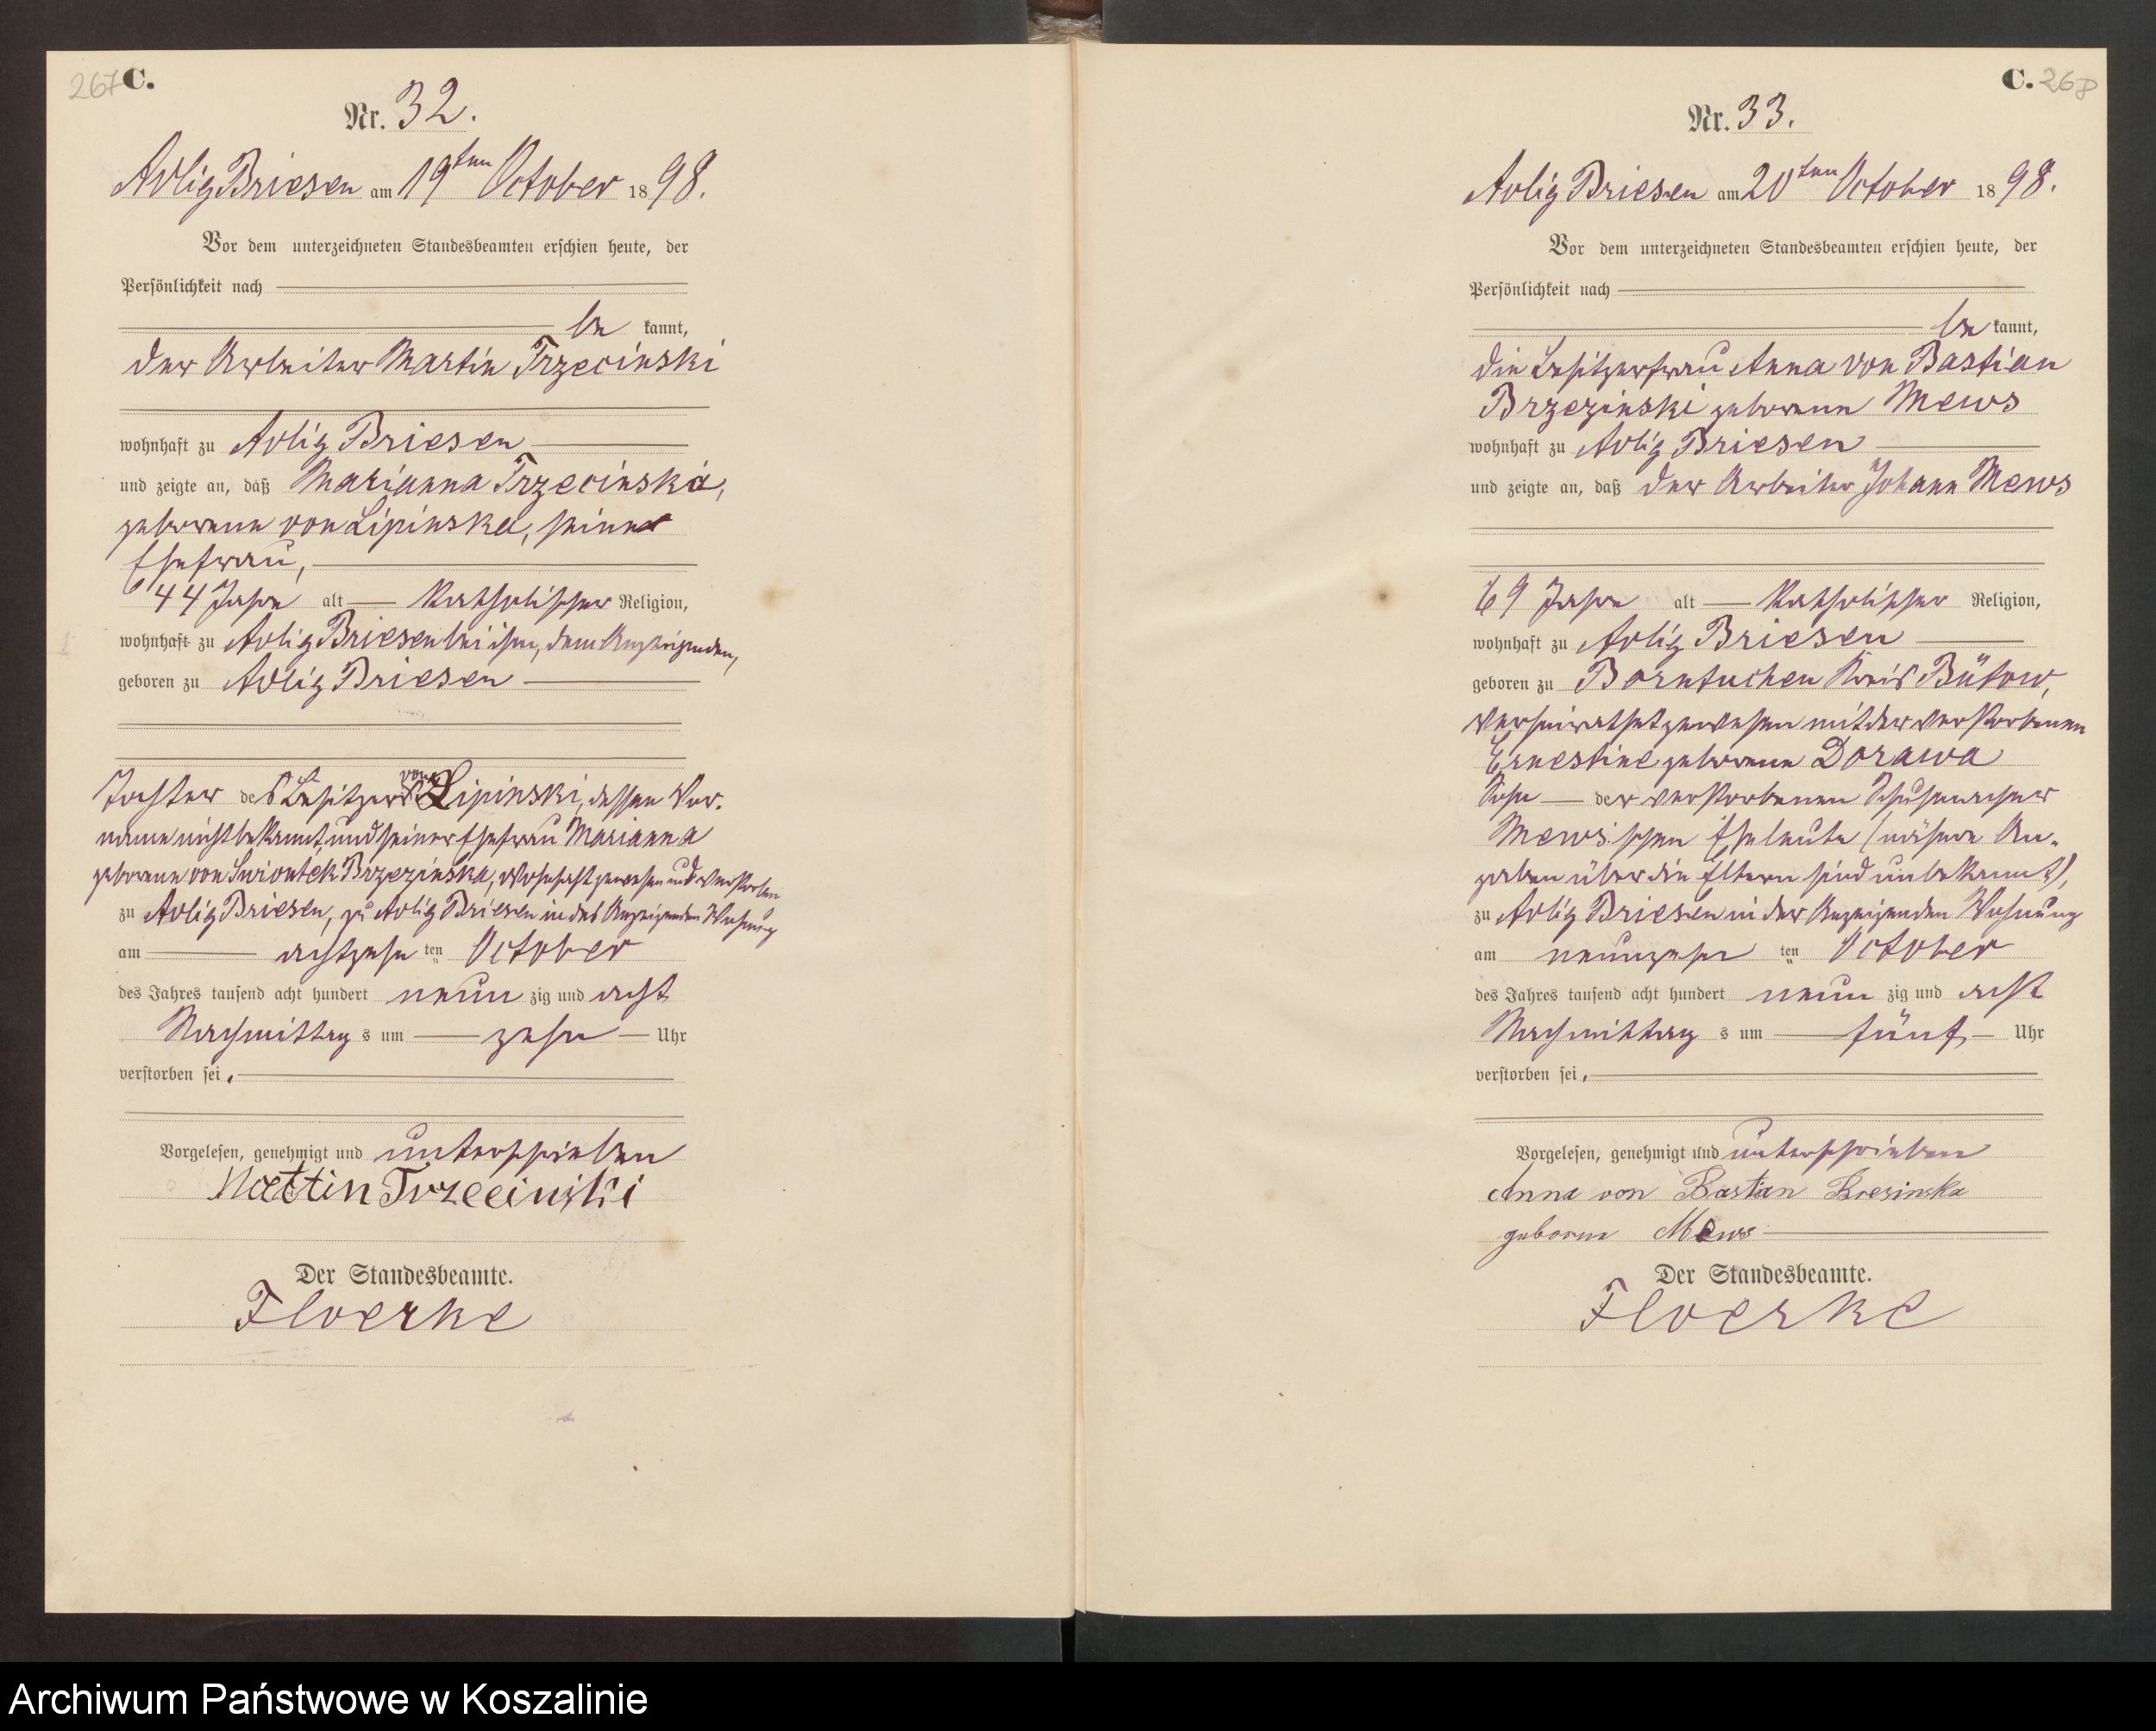 267 C.
Nr. 32.
Adlig Briesen am 19ten October 1898.
Vor dem unterzeichneten Standesbeamten erschien heute, der
Persönlichkeit nach
be kannt,
der Arbeiter Martin Trzecinski
wohnhaft zu Adlig Briesen
und zeigte an, daß Marianna Trzecinska,
geborene von Lipinska, seine
Ehefrau,
44 Jahre alt katholischer Religion,
wohnhaft zu Adlig Briesen bei ihm, dem Anzeigenden,
geboren zu Adlig Briesen
Tochter des Besitzers von Lipinski, dessen Vor-
name nicht bekannt, und seiner Ehefrau Marianna
geborene von Swiontek Brzezinska, wohnhaft gewesen und verstorben
zu Adlig Briesen, zu Adlig Briesen in des Anzeigenden Wohnung
am achtzehn ten October
des Jahres tausend acht hundert neun zig und acht
Nachmittag s um zehn Uhr
verstorben sei.
Vorgelesen, genehmigt und unterschrieben
Martin Trzecinski
Der Standesbeamte.
Floerke
C. 268
Nr. 33.
Adlig Briesen am 20ten October 1898.
Vor dem unterzeichneten Standesbeamten erschien heute, der
Persönlichkeit nach
be kannt,
die Besitzerfrau Anna von Bastian
Brzezinski geborene Mews
wohnhaft zu Adlig Briesen
und zeigte an, daß der Arbeiter Johann Mews
69 Jahre alt katholischer Religion,
wohnhaft zu Adlig Briesen
geboren zu Borntuchen Kreis Bütow,
verheirathet gewesen mit der verstorbenen
Ernestine geborene Dorawa
Sohn der verstorbenen Schuhmacher
Mews'schen Eheleute (nähere An-
gaben über die Eltern sind unbekannt),
zu Adlig Briesen in der Anzeigenden Wohnung
am neunzehn ten October
des Jahres tausend acht hundert neun zig und acht
Nachmittag s um fünf Uhr
verstorben sei.
Vorgelesen, genehmigt und unterschrieben
Anna von Bastian Bresinska
geborne Mews
Der Standesbeamte.
Floerke
Archiwum Państwowe w Koszalinie